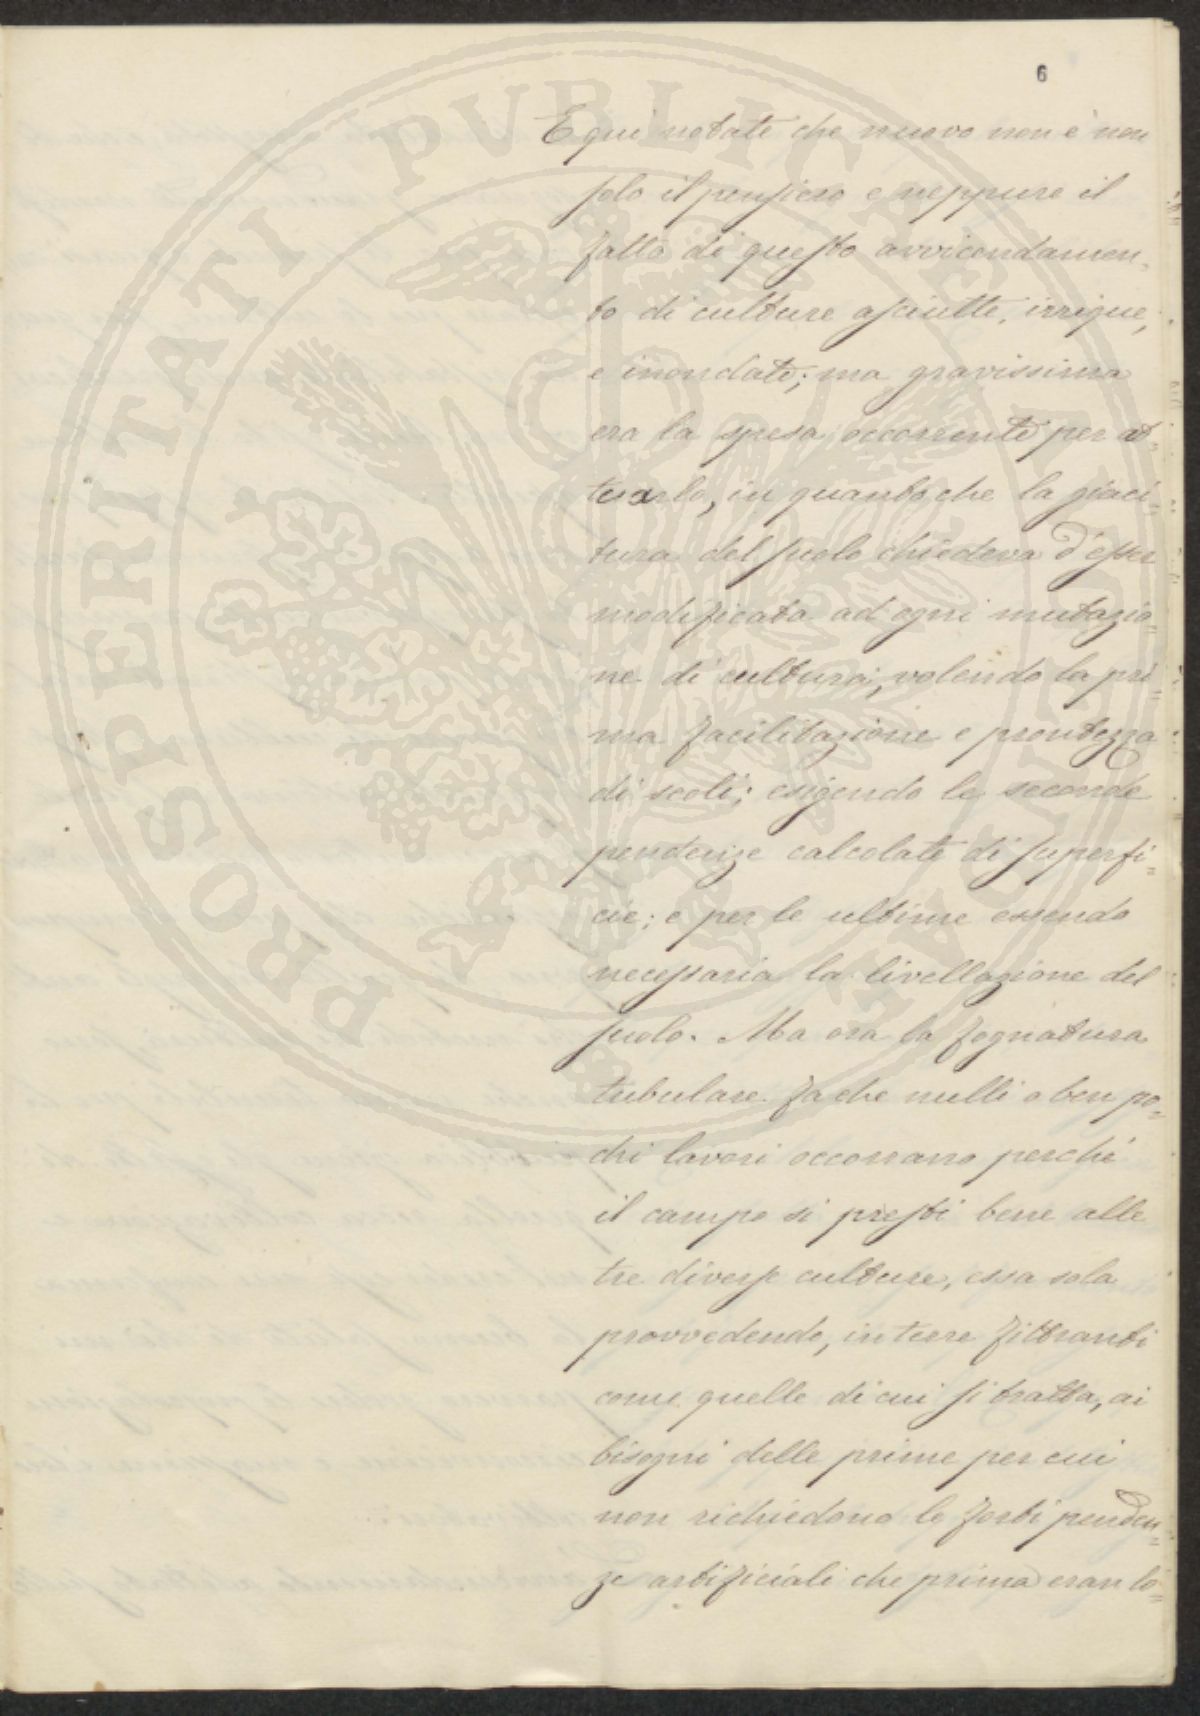 6
PROSPERITATI PUBLICAE AUGENDAE
E qui notate che nuovo non è non
solo il pensiero e neppure il
fatto di questo avvicendamen-
to di culture asciutte, irrigue,
e inondate; ma gravissima
era la spesa occorrente per at-
tuarlo, in quanto che la giaci-
tura del suolo chiedeva d'esser
modificata ad ogni mutazio-
ne di cultura; volendo la pri-
ma facilitazione e prontezza
di scoli; esigendo le seconde
pendenze calcolate di superfi-
cie; e per le ultime essendo
necessaria la livellazione del
suolo. Ma ora la fognatura
tubulare fa che nulli o ben po-
chi lavori occorrano perché
il campo si presti bene alle
tre diverse culture, essa sola
provvedendo, in terre filtranti
come quelle di cui si tratta, ai
bisogni delle prime per cui
non richiedono le forti penden-
ze artificiali che prima eran lo-